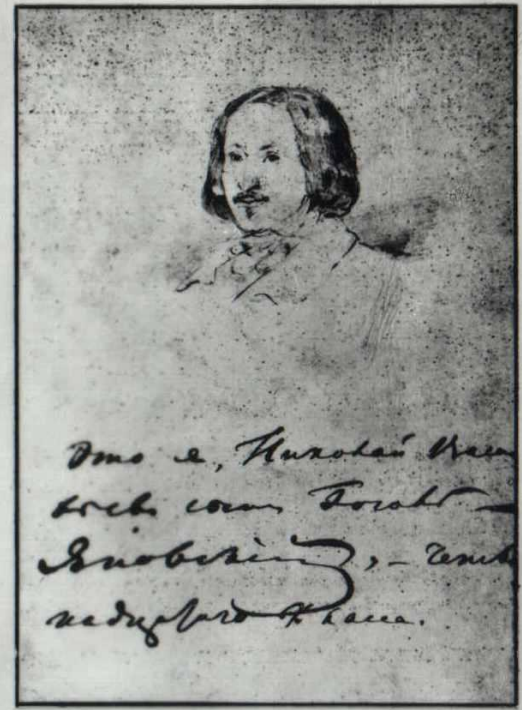 Это я, Николай Васи
льевъ сынъ Гоголь —
Яновскій, — четыр
надцатаго класса.